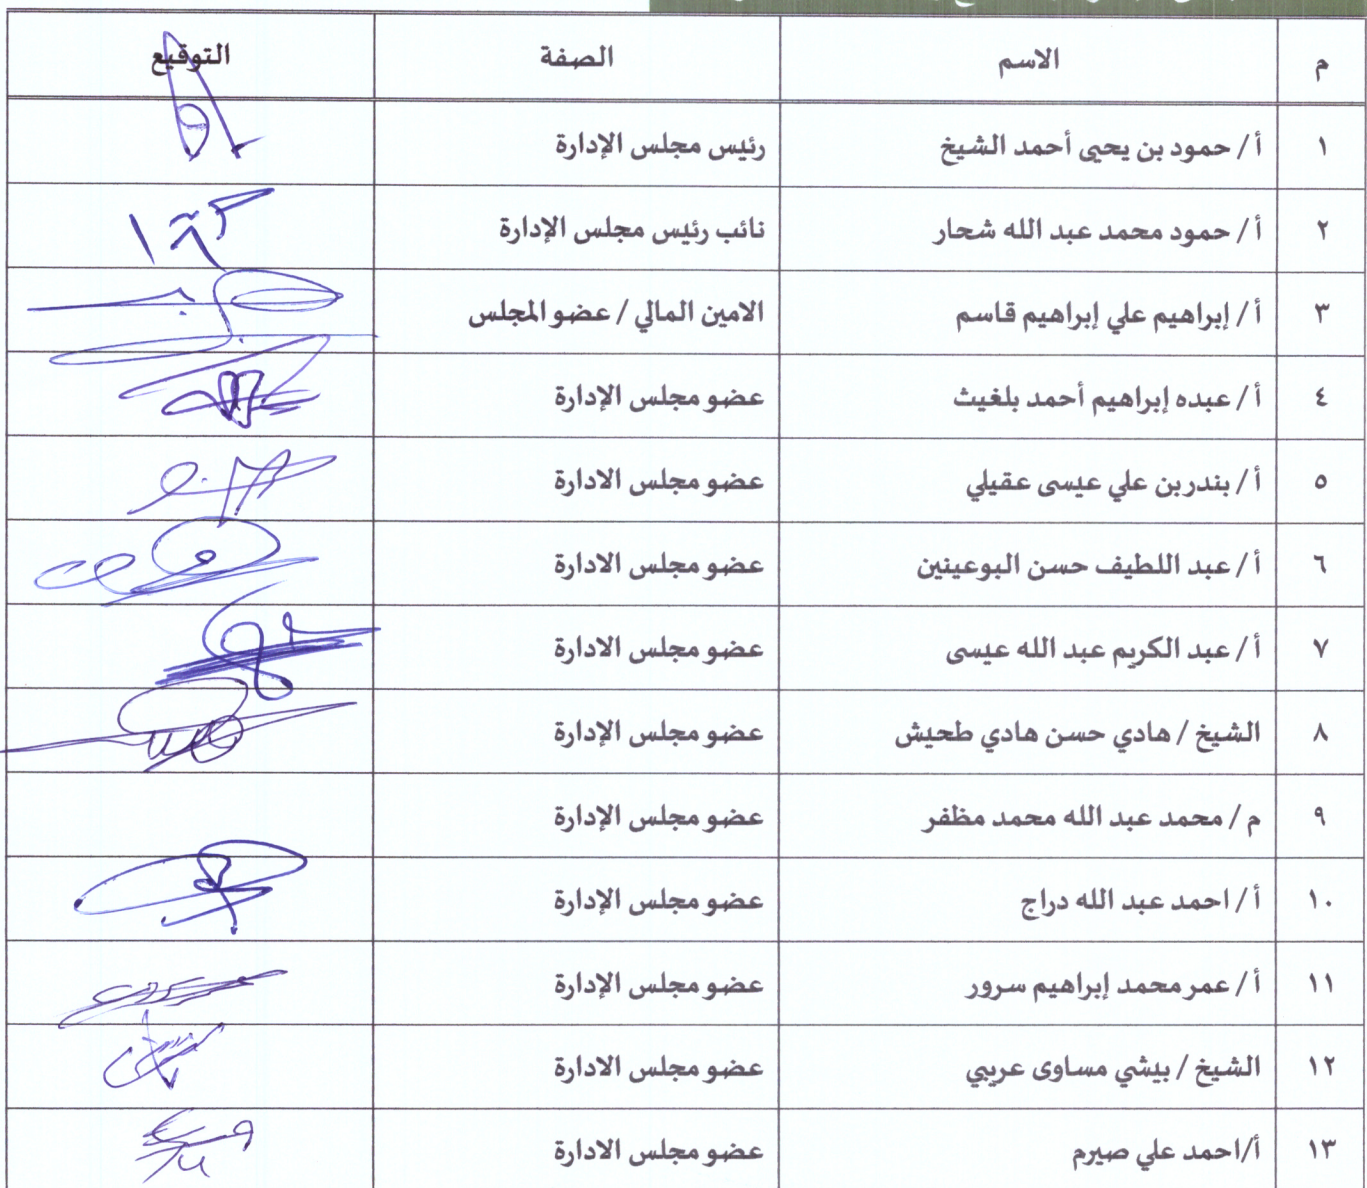 م الاسم الصفة التوقيع
١ أ / حمود بن يحيى أحمد الشيخ رئيس مجلس الإدارة
٢ أ / حمود محمد عبد الله شحار نائب رئيس مجلس الإدارة
٣ أ / إبراهيم علي إبراهيم قاسم الامين المالي / عضو المجلس
٤ أ / عبده إبراهيم أحمد بلغيث عضو مجلس الإدارة
٥ أ / بندر بن علي عيسى عقيلي عضو مجلس الادارة
٦ أ / عبد اللطيف حسن البوعينين عضو مجلس الادارة
٧ أ / عبد الكريم عبد الله عيسى عضو مجلس الادارة
٨ الشيخ / هادي حسن هادي طحيش عضو مجلس الإدارة
٩ م / محمد عبد الله محمد مظفر عضو مجلس الإدارة
١٠ أ / احمد عبد الله دراج عضو مجلس الإدارة
١١ أ / عمر محمد إبراهيم سرور عضو مجلس الإدارة
١٢ الشيخ / بيشي مساوى عريبي عضو مجلس الادارة
١٣ أ/احمد علي صيرم عضو مجلس الادارة